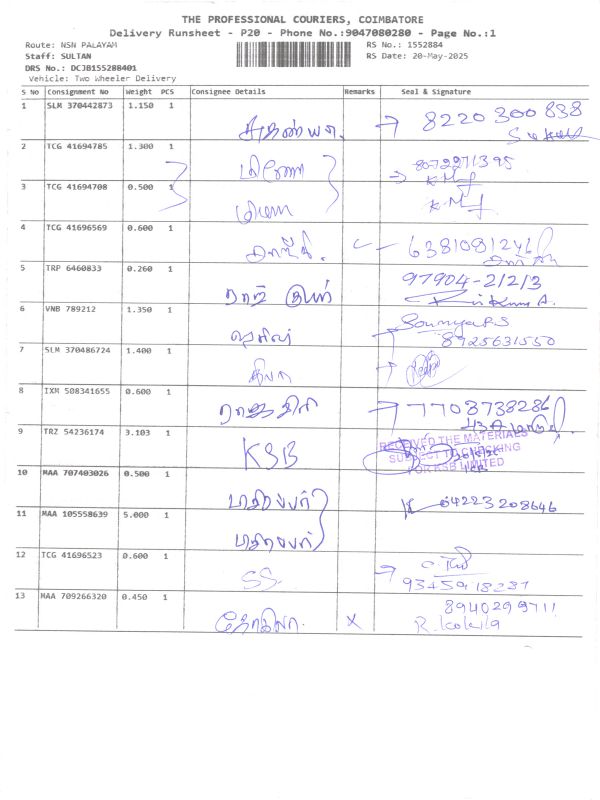 THE PROFESSIONAL COURIERS, COIMBATORE
Delivery Runsheet - P20 - Phone No.:9047080280 - Page No.:1
Route: NSN PALAYAM
RS No.: 1552884
Staff: SULTAN
RS Date: 20-May-2025
DRS No.: DCJB155288401
Vehicle: Two Wheeler Delivery
S No Consignment No Weight PCS Consignee Details Remarks Seal & Signature
1 SLM 370442873 1.150 1 8220300838
2 TCG 41694785 1.300 1 8072271395
K.M
3 TCG 41694708 0.500 1
K.M
4 TCG 41696569 0.600 1 6381081246
5 TRP 6460833 0.260 1 ராஜ் குமார் 97904-21213
6 VNB 789212 1.350 1 Soumya P.S
8925631550
7 SLM 370486724 1.400 1 தீபா
8 IXM 508341655 0.600 1 7708738286
9 TRZ 54236174 3.103 1 KSB
RECEIVED THE MATERIALS
SUBJECT TO CHECKING
FOR KSB LIMITED
10 MAA 707403026 0.500 1 04223208646
11 MAA 105558639 5.000 1
12 TCG 41696523 0.600 1 SS.
9345918237
13 MAA 709266320 0.450 1 கோகிலா. X 8940299711
R. Kokila